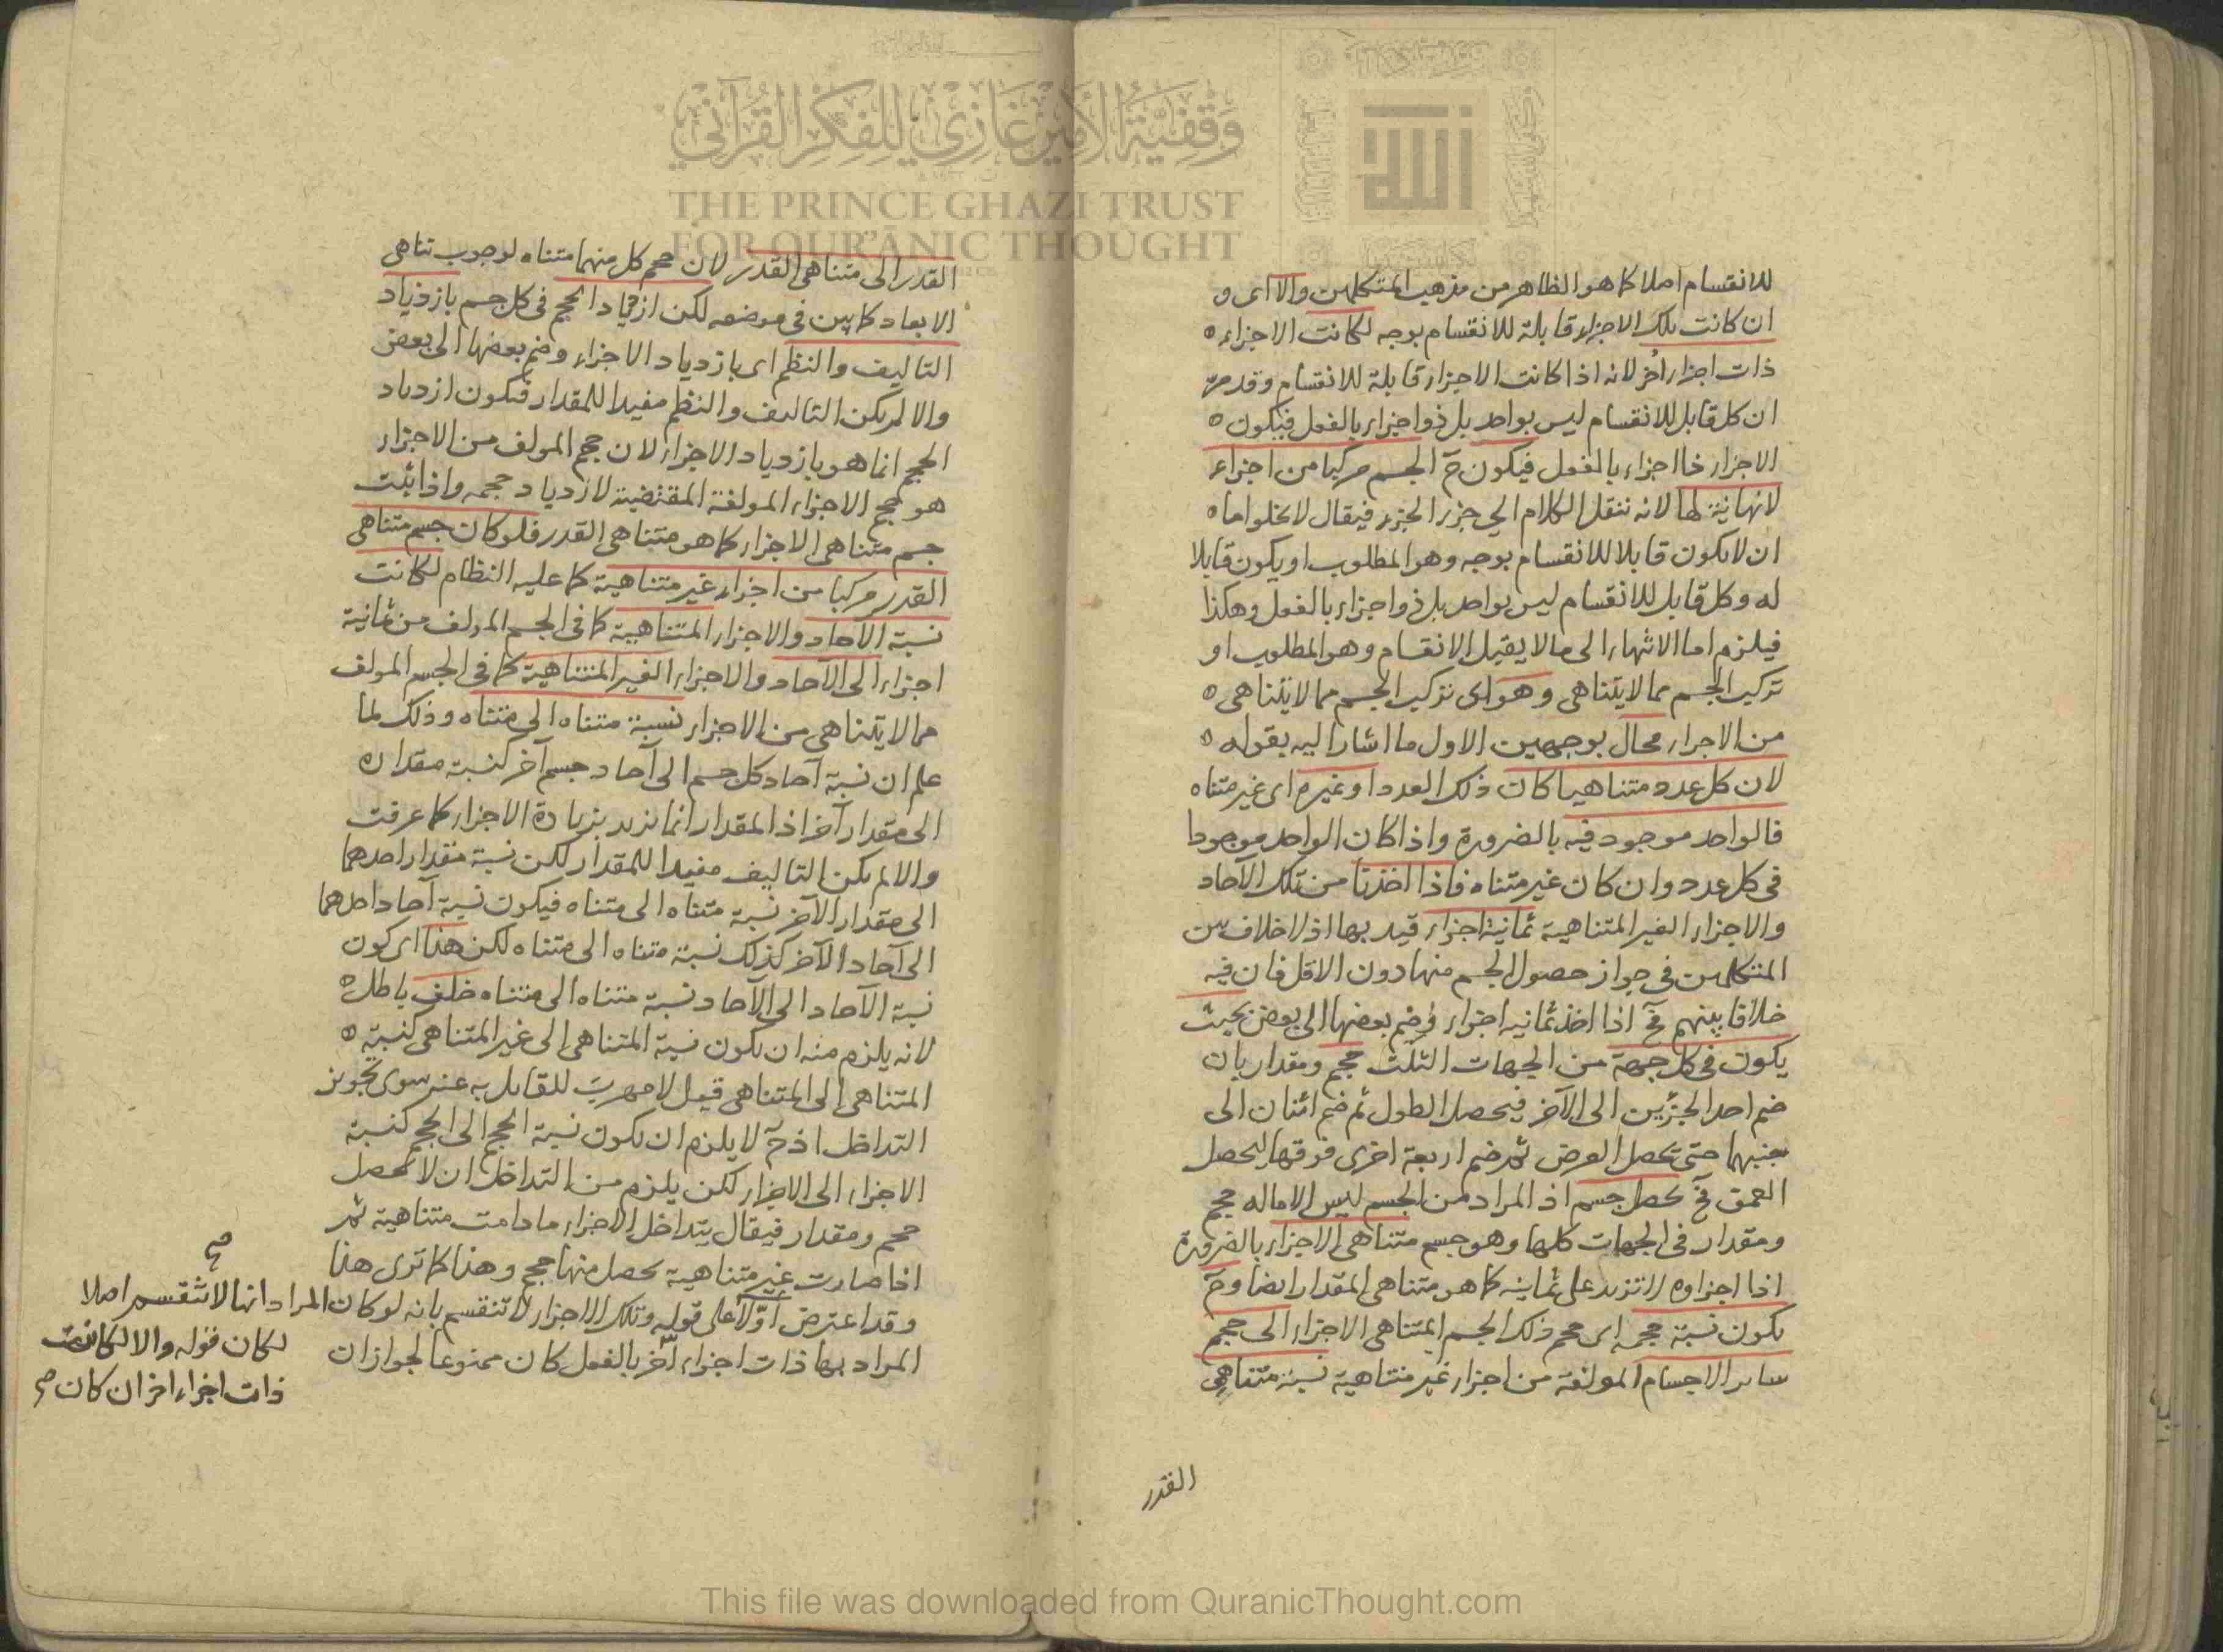 وقفية الأمير غازي للفكر القرآني
THE PRINCE GHAZI TRUST
FOR QUR'ĀNIC THOUGHT
الله
للانقسام اصلا كما هو الظاهر من مذهب المتكلمين والا اى و
ان كانت تلك الاجزاء قابلة للانقسام بوجه لكانت الاجزاء
ذات اجزاء أُخر لانه اذا كانت الاجزاء قابلة للانقسام وقد مر
ان كل قابل للانقسام ليس بواحد بل ذو اجزاء بالفعل فيكون
الاجزاء ذا اجزاء بالفعل فيكون حٓ الجسم مركبا من اجزاء
لانهاية لها لانه ننقل الكلام الى جزء الجزء فيقال لا يخلو اما
ان لا يكون قابلا للانقسام بوجه وهو المطلوب او يكون قابلا
له وكل قابل للانقسام ليس بواحد بل ذو اجزاء بالفعل وهكذا
فيلزم اما الانتهاء الى ما لا يقبل الانقسام وهو المطلوب او
تركيب الجسم مما لا يتناهى وهو اى تركيب الجسم مما لا يتناهى
من الاجزاء محال بوجهين الاول ما اشار اليه بقوله
لان كل عدد متناهيا كان ذلك العدد او غيره اى غير متناه
فالواحد موجود فيه بالضرورة واذا كان الواحد موجودا
فى كل عدد وان كان غير متناه فاذا اخذنا من تلك الآحاد
والاجزاء الغير المتناهية ثمانية اجزاء قيد بها اذ لا خلاف بين
المتكلمين فى جواز حصول الجسم منها دون الاقل فان فيه
خلافا بينهم فحٓ اذا اخذ ثمانيه اجزاء وضم بعضها الى بعض بحيث
يكون فى كل جهة من الجهات الثلث حجم ومقدار بان
ضم احد الجزئين الى الآخر فيحصل الطول ثم ضم اثنان الى
جنبهما حتى يحصل العرض ثم ضم اربعة اخرى فوقها ليحصل
العمق فحٓ يحصل جسم اذ المراد من الجسم ليس الا ماله حجم
ومقدار فى الجهات كلها وهو جسم متناهى الاجزاء بالضرورة
اذا اجزاوه لا تزيد على ثمانيه كما هو متناهى المقدار ايضا وحٓ
يكون نسبة حجمه اى حجم ذلك الجسم المتناهى الاجزاء الى حجم
ساير الاجسام المولفة من اجزاء غير متناهية نسبة متناهى
القدر
القدر الى متناهى القدر لان حجم كل منهما متناه لوجوب تناهى
الابعاد كما بين فى موضعه لكن ازدياد الحجم فى كل جسم بازدياد
التاليف والنظم اى بازدياد الاجزاء وضم بعضها الى بعض
والا لم يكن التاليف والنظم مفيدا للمقدار فيكون ازدياد
الحجم انما هو بازدياد الاجزاء لان حجم المولف من الاجزاء
هو حجم الاجزاء المولفة المقتضية لازدياد حجمه واذا ثبت
جسم متناهى الاجزاء كما هو متناهى القدر فلو كان جسم متناهى
القدر مركبا من اجزاء غير متناهية كما عليه النظام لكانت
نسبة الآحاد والاجزاء المتناهية كما فى الجسم المولف من ثمانية
اجزاء الى الآحاد والاجزاء الغير المتناهية كما فى الجسم المولف
مما لا يتناهى من الاجزاء نسبة متناه الى متناه وذلك لما
علم ان نسبة آحاد كل جسم الى آحاد جسم آخر كنسبة مقداره
الى مقدار آخر اذ المقدار انما يزيد بزيادة الاجزاء كما عرفت
والا لم يكن التاليف مفيدا للمقدار لكن نسبة مقدار احدهما
الى مقدار الآخر نسبة متناه الى متناه فيكون نسبة آحاد احدهما
الى آحاد الآخر كذلك نسبة متناه الى متناه لكن هذا اى كون
نسبة الآحاد الى الآحاد نسبة متناه الى متناه خلف باطل
لانه يلزم منه ان يكون نسبة المتناهى الى غير المتناهى كنسبة
المتناهى الى المتناهى قيل لا مهرب للقايل به عنه سوى تجويز
التداخل اذ حٓ لا يلزم ان يكون نسبة الحجم الى الحجم كنسبة
الاجزاء الى الاجزاء لكن يلزم من التداخل ان لا يحصل
حجم ومقدار فيقال يتداخل الاجزاء مادامت متناهية ثم
اذا صارت غير متناهية يحصل منها حجم وهذا كما ترى هذا
وقد اعترض اوّلا على قوله وتلك الاجزاء لا تنقسم بانه لو كان
المراد بها ذات اجزاء أخر بالفعل كان ممنوعا لجواز ان
صح
المراد انها لا تنقسم اصلا
لكان قوله والا لكانت
ذات اجزاء اخر ان كان صح
This file was downloaded from QuranicThought.com